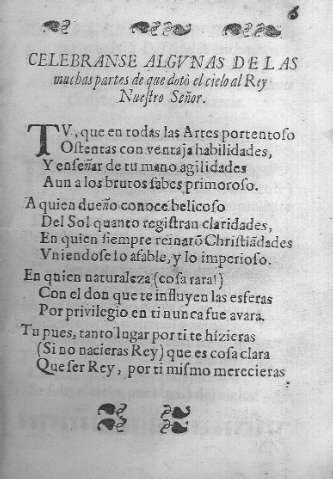 6
CELEBRANSE ALGVNAS DE LAS
muchas partes de que dotò el cielo al Rey
Nuestro Señor.
TV, que en todas las Artes portentoso
Ostentas con ventaja habilidades,
Y enseñar de tu mano agilidades
Aun a los brutos sabes primoroso.
A quien dueño conoce belicoso
Del Sol quanto registran claridades,
En quien siempre reinarõ Christiãdades
Vniendose lo afable, y lo imperioso.
En quien naturaleza (cosa rara!)
Con el don que te influyen las esferas
Por privilegio en ti nunca fue avara.
Tu pues, tanto lugar por ti te hizieras
(Si no nacieras Rey) que es cosa clara
Que ser Rey, por ti mismo merecieras